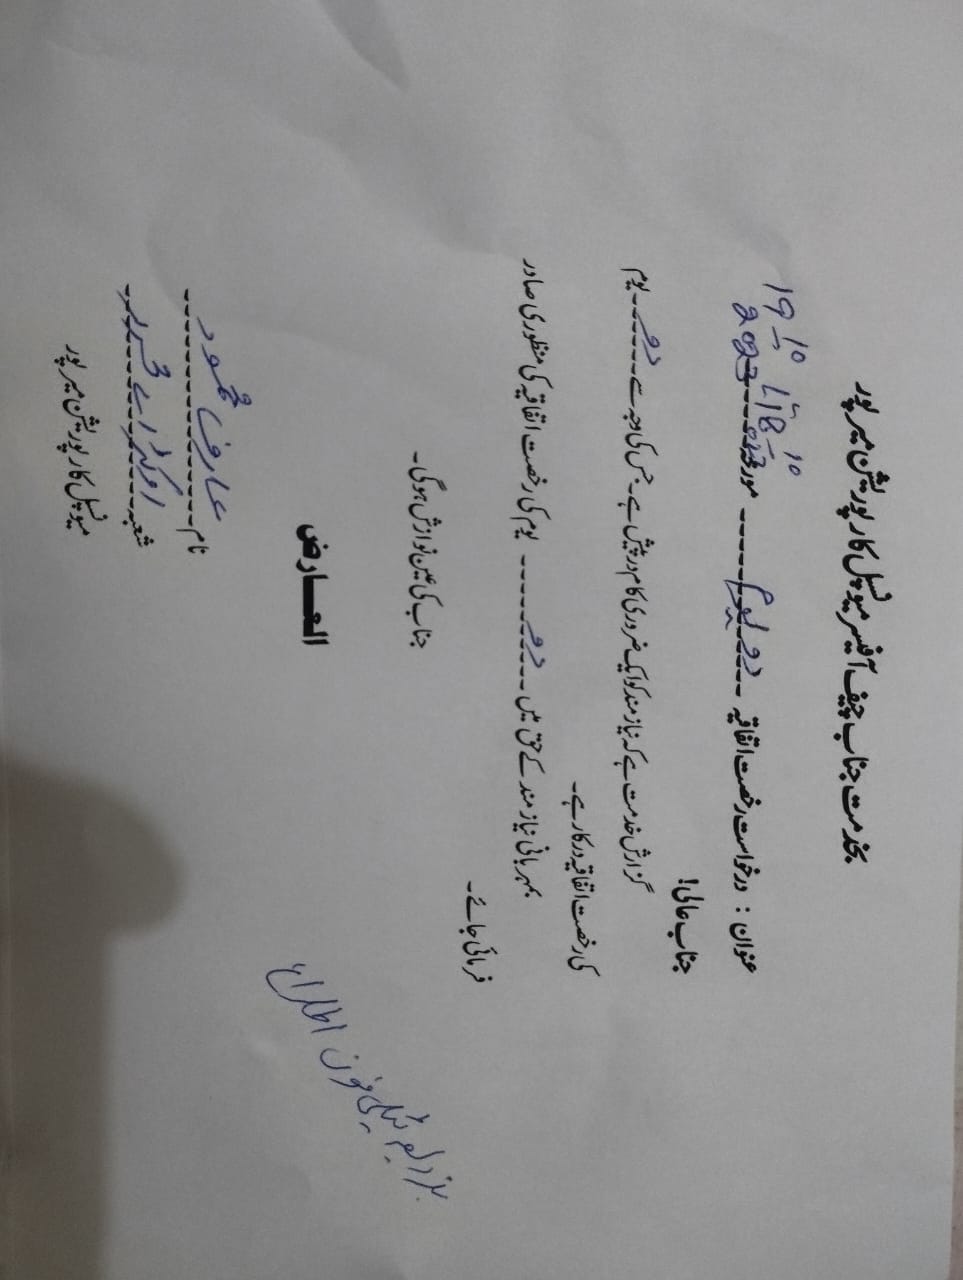 بخدمت جناب چیف آفیسر میونسپل کارپوریشن میرپور
عنوان : درخواست رخصت اتفاقیہ دو یوم مورخہ 18-10-2023 تا 19-10-2023
جناب عالی!
گزارش خدمت ہے کہ نیاز مند کو ایک ضروری کام درپیش ہے۔ جس کی وجہ سے دو یوم
کی رخصت اتفاقیہ درکار ہے۔
بمہربانی نیاز مند کے حق میں دو یوم کی رخصت اتفاقیہ کی منظوری صادر
فرمائی جائے۔
جناب کی عین نوازش ہوگی۔
العارض
نام عارف محمود
شعبہ محرر
میونسپل کارپوریشن میرپور
بذریعہ ٹیلی فون اطلاع